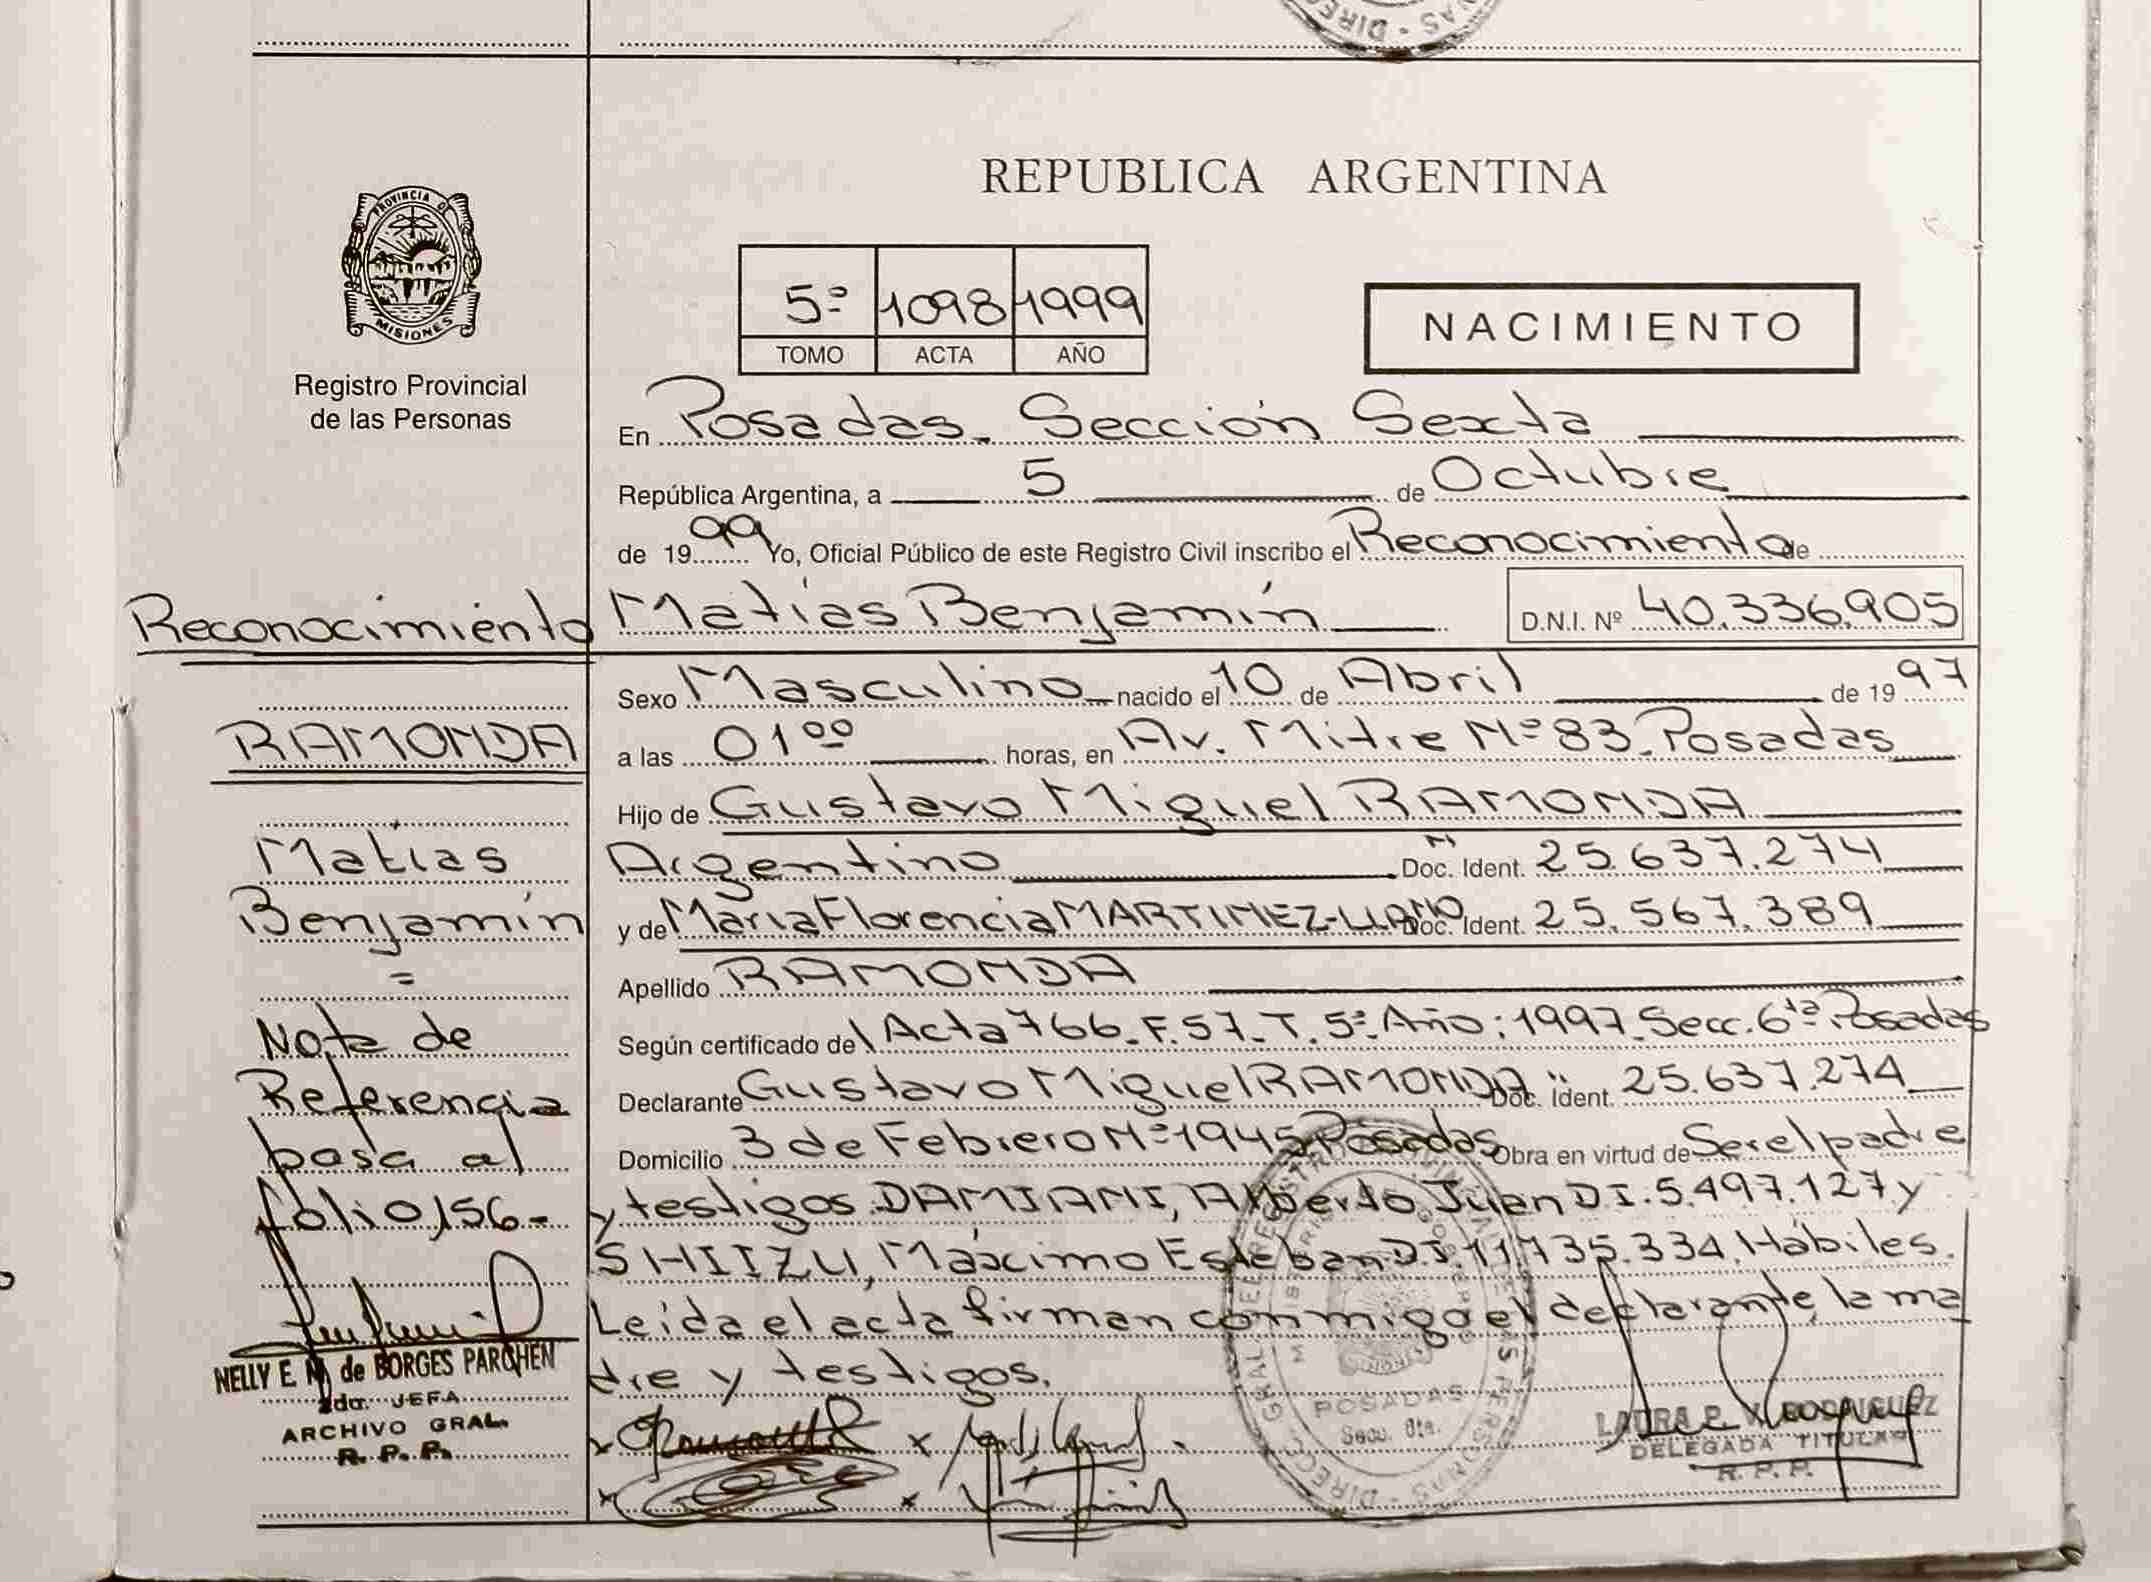 REPUBLICA ARGENTINA
PROVINCIA DE
MISIONES
Registro Provincial
de las Personas
5º 1098 1999
TOMO ACTA AÑO
NACIMIENTO
En Posadas. Sección Sexta
República Argentina, a 5 de Octubre
de 1999 Yo, Oficial Público de este Registro Civil inscribo el Reconocimiento de
Matías Benjamín D.N.I. Nº 40.336.905
Sexo Masculino nacido el 10 de Abril de 1997
a las 01ºº horas, en Av. Mitre Nº 83_Posadas
Hijo de Gustavo Miguel RAMONDA
Argentino Doc. Ident. 25.637.274
y de María Florencia MARTINEZ-LLANO Doc. Ident. 25.567.389
Apellido RAMONDA
Según certificado del Acta 766_F.57_T.5º Año: 1997_Secc. 6ta Posadas
Declarante Gustavo Miguel RAMONDA Doc. Ident. 25.637.274
Domicilio 3 de Febrero Nº 1945 Posadas Obra en virtud de Ser el padre
y testigos: DAMIANI, Alberto Juan D.I. 5.497.127 y
SHIIZU, Máximo Esteban D.I. 11.735.334. Hábiles.
Leída el acta firman conmigo el declarante, la ma
dre y testigos.
Reconocimiento
RAMONDA
Matías
Benjamín
=
Nota de
Referencia
pasa al
folio 156-
NELLY E. M. de BORGES PARCHEN
2da. JEFA
ARCHIVO GRAL.
R. P. P.
POSADAS
Secc. 6ta.
LAURA P. V. RODRIGUEZ
DELEGADA TITULAR
R. P. P.